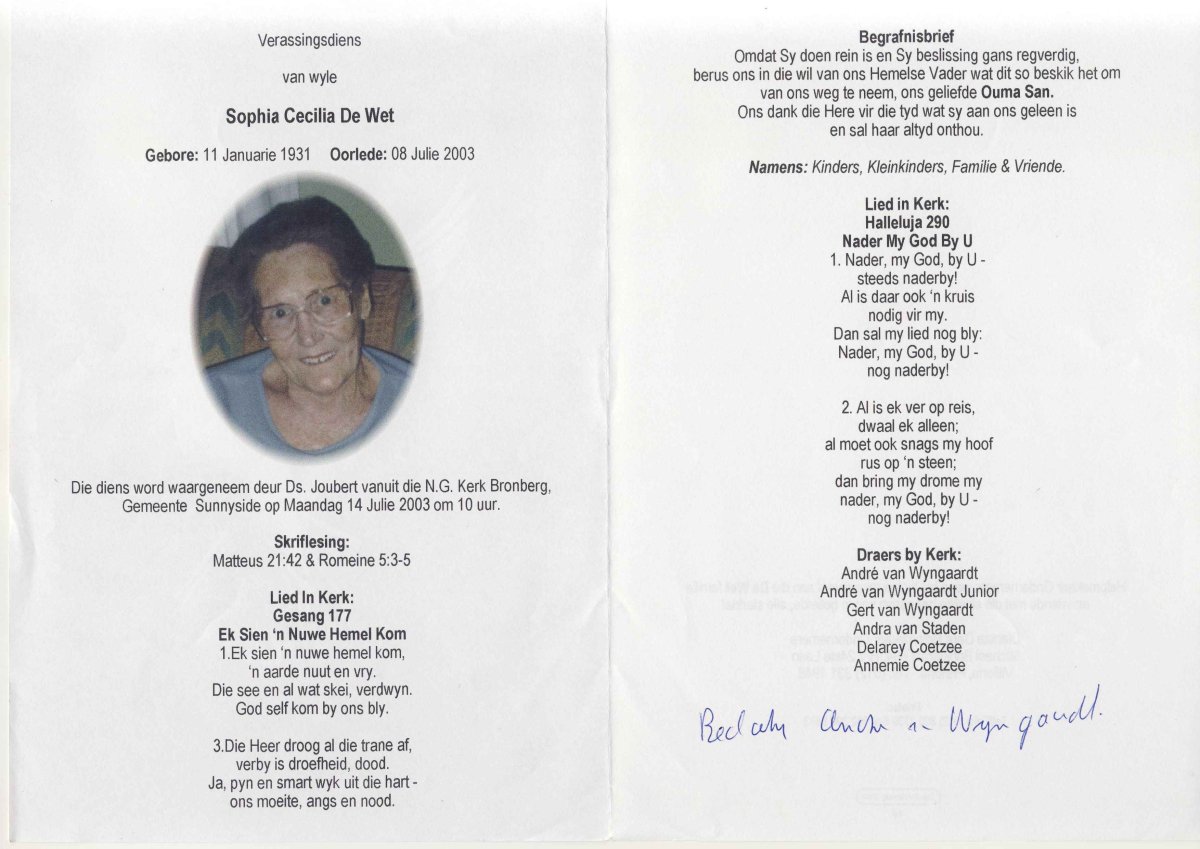 Verassingsdiens
van wyle
Sophia Cecilia De Wet
Gebore: 11 Januarie 1931 Oorlede: 08 Julie 2003
Die diens word waargeneem deur Ds. Joubert vanuit die N.G. Kerk Bronberg,
Gemeente Sunnyside op Maandag 14 Julie 2003 om 10 uur.
Skriflesing:
Matteus 21:42 & Romeine 5:3-5
Lied In Kerk:
Gesang 177
Ek Sien ‘n Nuwe Hemel Kom
1.Ek sien ‘n nuwe hemel kom,
‘n aarde nuut en vry.
Die see en al wat skei, verdwyn.
God self kom by ons bly.
3.Die Heer droog al die trane af,
verby is droefheid, dood.
Ja, pyn en smart wyk uit die hart -
ons moeite, angs en nood.
Begrafnisbrief
Omdat Sy doen rein is en Sy beslissing gans regverdig,
berus ons in die wil van ons Hemelse Vader wat dit so beskik het om
van ons weg te neem, ons geliefde Ouma San.
Ons dank die Here vir die tyd wat sy aan ons geleen is
en sal haar altyd onthou.
Namens: Kinders, Kleinkinders, Familie & Vriende.
Lied in Kerk:
Halleluja 290
Nader My God By U
1. Nader, my God, by U -
steeds naderby!
Al is daar ook ‘n kruis
nodig vir my.
Dan sal my lied nog bly:
Nader, my God, by U -
nog naderby!
2. Al is ek ver op reis,
dwaal ek alleen;
al moet ook snags my hoof
rus op ‘n steen;
dan bring my drome my
nader, my God, by U -
nog naderby!
Draers by Kerk:
André van Wyngaardt
André van Wyngaardt Junior
Gert van Wyngaardt
Andra van Staden
Delarey Coetzee
Annemie Coetzee
Wyngaardt.